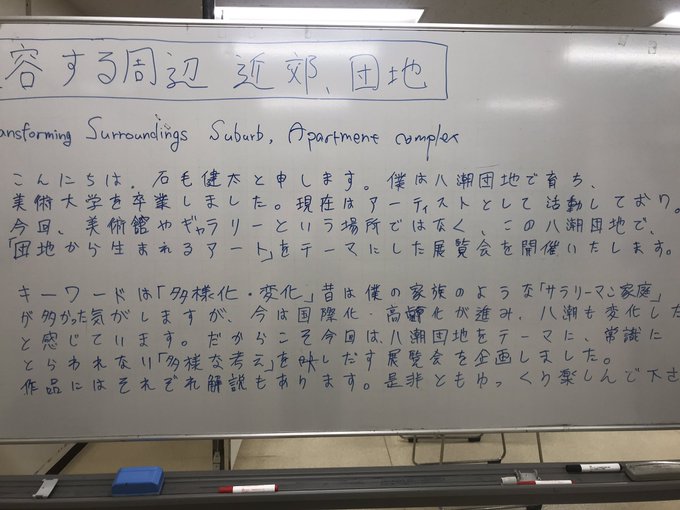 容する周辺 近郊、団地
ansforming Surroundings Suburb, Apartment complex
こんにちは。石毛健太と申します。僕は八潮団地で育ち、
美術大学を卒業しました。現在はアーティストとして活動しており。
今回、美術館やギャラリーという場所ではなく、この八潮団地で、
「団地から生まれるアート」をテーマにした展覧会を開催いたします。
キーワードは「多様化・変化」昔は僕の家族のような「サラリーマン家庭」
が多かった気がしますが、今は国際化 高齢化が進み、八潮も変化した
と感じています。だからこそ今回は、八潮団地をテーマに、常識に
とらわれない「多様な考え」を映しだす展覧会を企画しました。
作品にはそれぞれ解説もあります。是非ともゆっくり楽しんで下さ